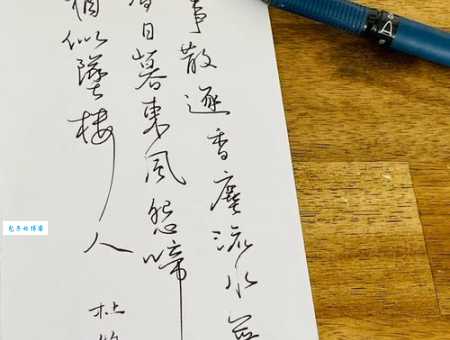 事散逐香塵流水無
春日暮東風怨啼
猶似墜楼人
杜牧